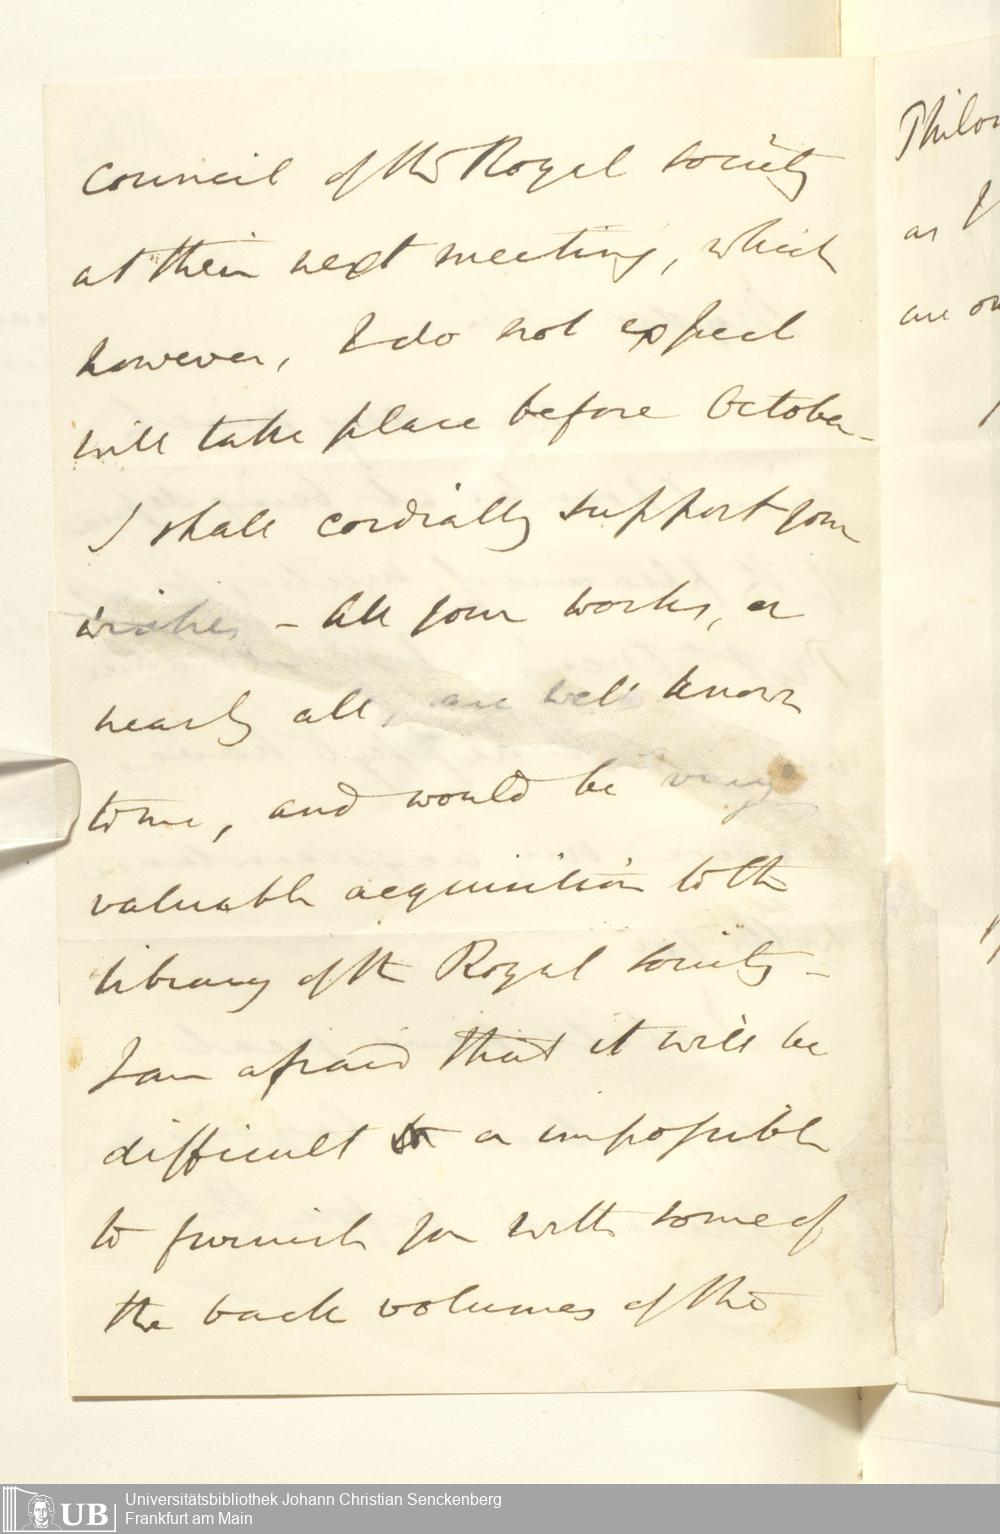 council of the Royal Society
at their next meeting, which
however, I do not expect
will take place before October –
I shall cordially support your
wishes – All your works, or
nearly all, are well known
to me, and would be very
valuable acquisition to the
library of the Royal Society –
I am afraid that it will be
difficult or impossible
to furnish you with some of
the back volumes of the
Philos
as I
are on
UB
Universitätsbibliothek Johann Christian Senckenberg
Frankfurt am Main